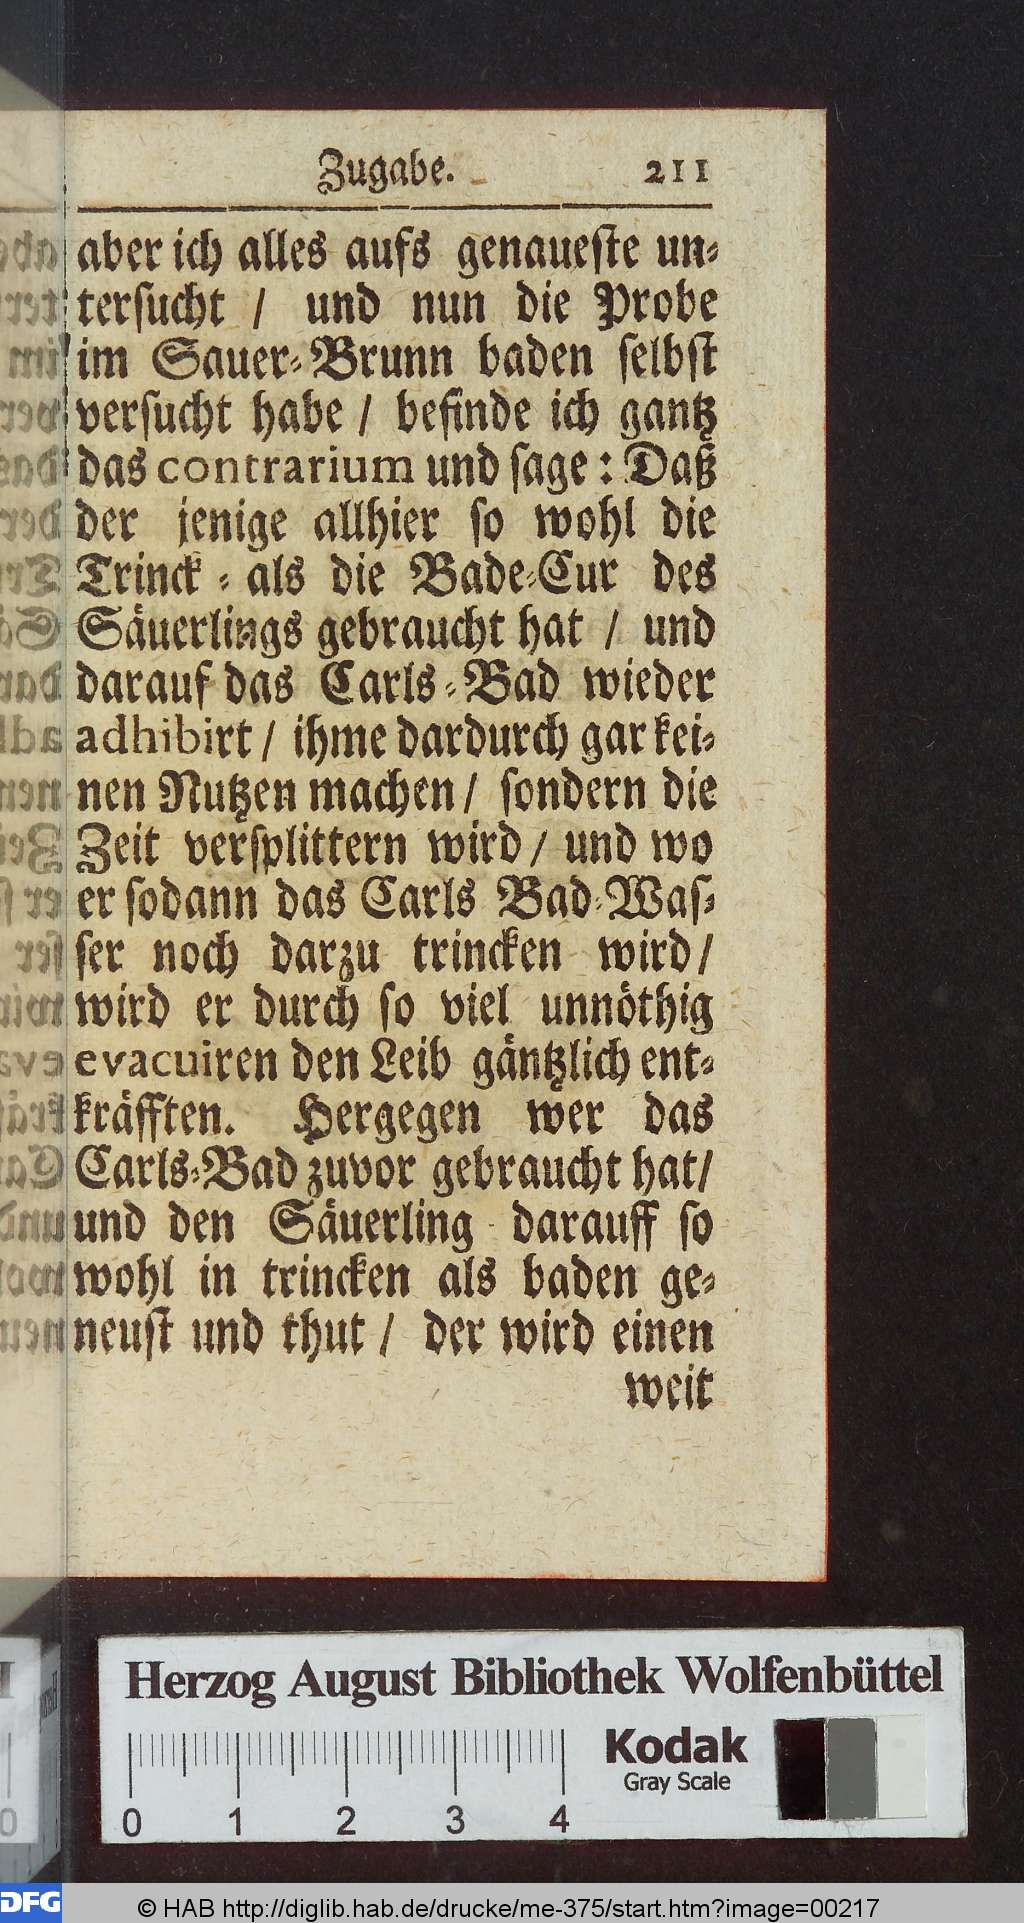 Zugabe. 211
aber ich alles aufs genaueste un-
tersucht / und nun die Probe
im Sauer-Brunn baden selbst
versucht habe / befinde ich gantz
das contrarium und sage: Daß
der jenige allhier so wohl die
Trinck- als die Bade-Cur des
Säuerlings gebraucht hat / und
darauf das Carls-Bad wieder
adhibirt / ihme dardurch gar kei-
nen Nutzen machen / sondern die
Zeit versplittern wird / und wo
er sodann das Carls Bad-Was-
ser noch darzu trincken wird /
wird er durch so viel unnöthig
evacuiren den Leib gäntzlich ent-
kräfften. Hergegen wer das
Carls-Bad zuvor gebraucht hat /
und den Säuerling darauff so
wohl in trincken als baden ge-
neust und thut / der wird einen
weit
Herzog August Bibliothek Wolfenbüttel
Kodak
Gray Scale
0 1 2 3 4
DFG
© HAB http://diglib.hab.de/drucke/me-375/start.htm?image=00217